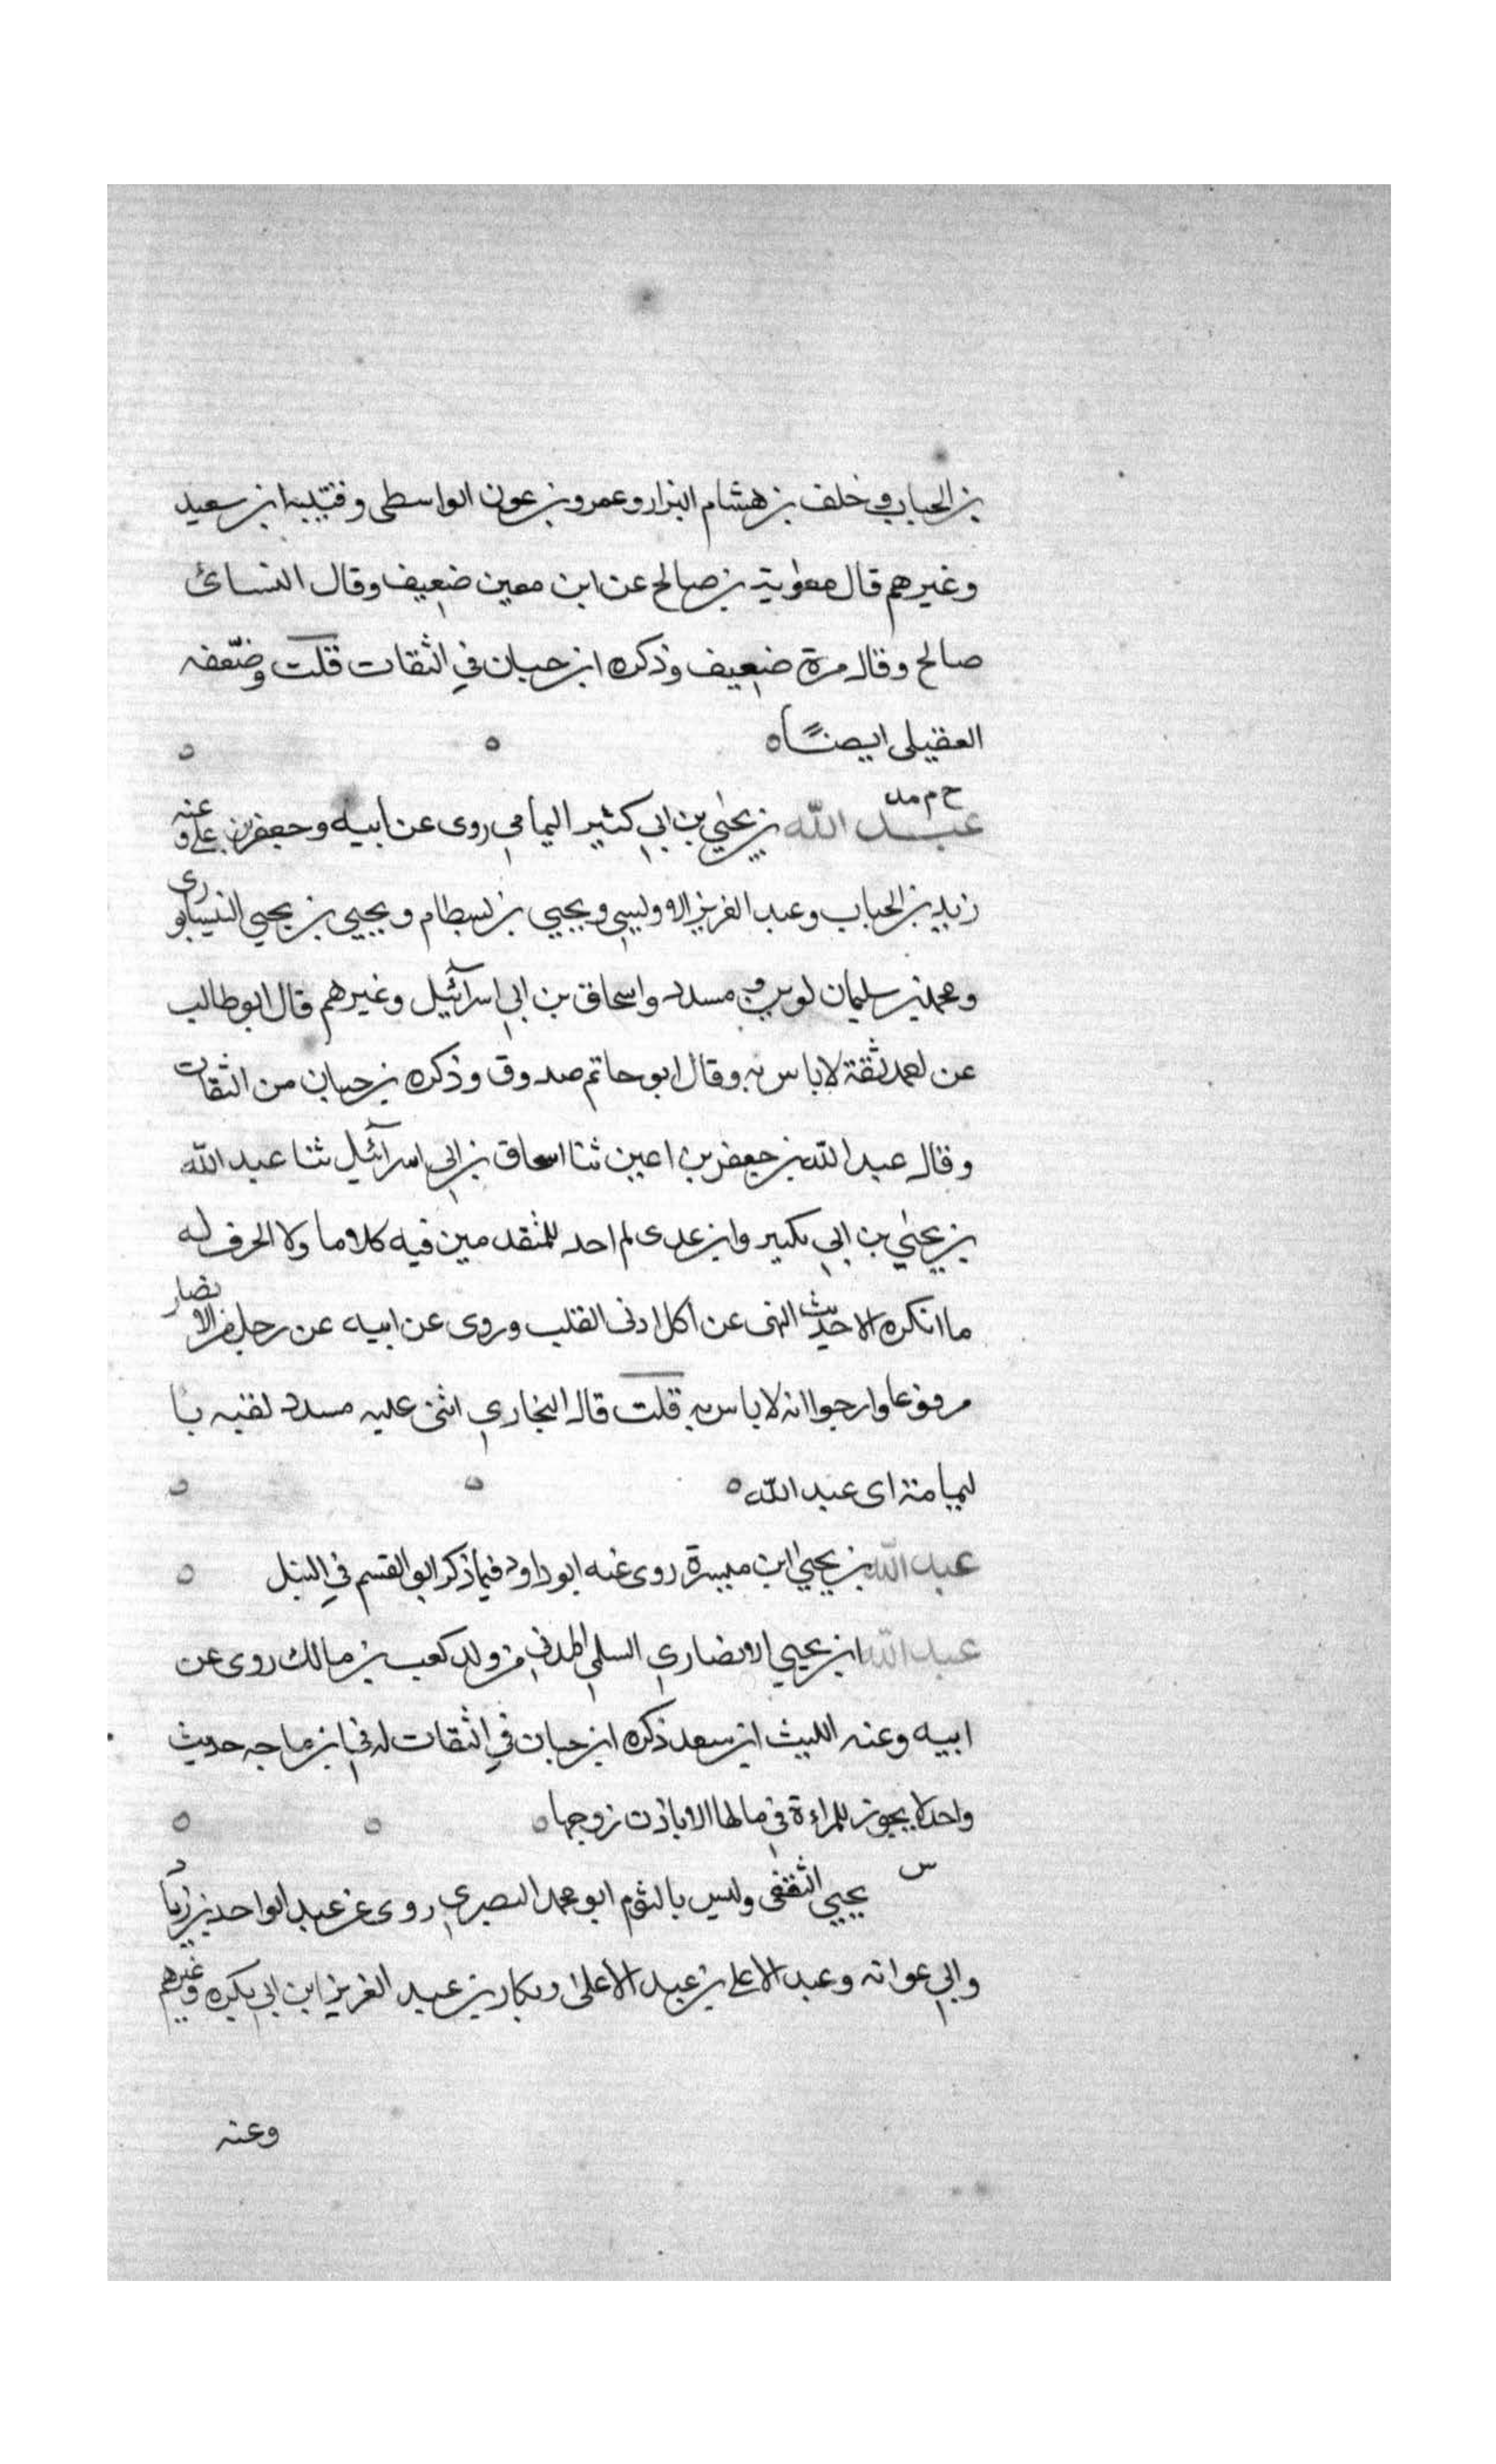 بن الحباب وخلف بن هشام البزار وعمرو بن عون الواسطى وقتيبه ابن سعيد
وغيرهم قال معوية بن صالح عن ابن معين ضعيف وقال النسائ
صالح وقال مرة ضعيف وذكره ابن حبان في الثقات قلت وضعّفه
العقيلى ايضاً
خ م مد
عبد الله بن يحيي بن ابي كثير اليمامي روى عن ابيه وجعفر بن علي وعنه
زيد بن الحباب وعبد العزيز الاوليسي ويحيي بن بسطام ويحيي بن يحيي النيسابورى
ومحمد بن سليمان لوين ومسدد واسحاق بن ابي اسرآئيل وغيرهم قال ابو طالب
عن احمد ثقة لا باس به وقال ابو حاتم صدوق وذكره بن حبان من الثقات
وقال عبد الله بن جعفر بن اعين ثنا اسحاق بن ابي اسرآئيل ثنا عبد الله
بن يحيي بن ابي بكير وابن عدى لم احد للمتقدمين فيه كلاما ولا الحرف له
ما انكره الا حديث النهى عن اكل ادنى القلب وروى عن ابيه عن رجل من الانصار
مرفوعا وارجوا انه لا باس به قلت قال البخاري اثنى عليه مسدد لقيه با
ليمامة اى عبد الله
عبد الله بن يحيي ابن ميسرة روى عنه ابو داود فيما ذكر ابو القسم في النبل
عبد الله ابن يحيي الانصاري السلمي المدني من ولد كعب بن مالك روى عن
ابيه وعنه الليث ابن سعد ذكره ابن حبان في الثقات له في ابن ماجه حديث
واحد لا يجوز للمراءة في مالها الا باذن زوجها
س
يحيي الثقفى وليس بالثوم ابو محمد البصري روى عن عبد الواحد بن زياد
وابي عوانه وعبد الاعلى بن عبد الاعلى وبكار بن عبد العزيز ابن ابي بكره وغيرهم
وعنه